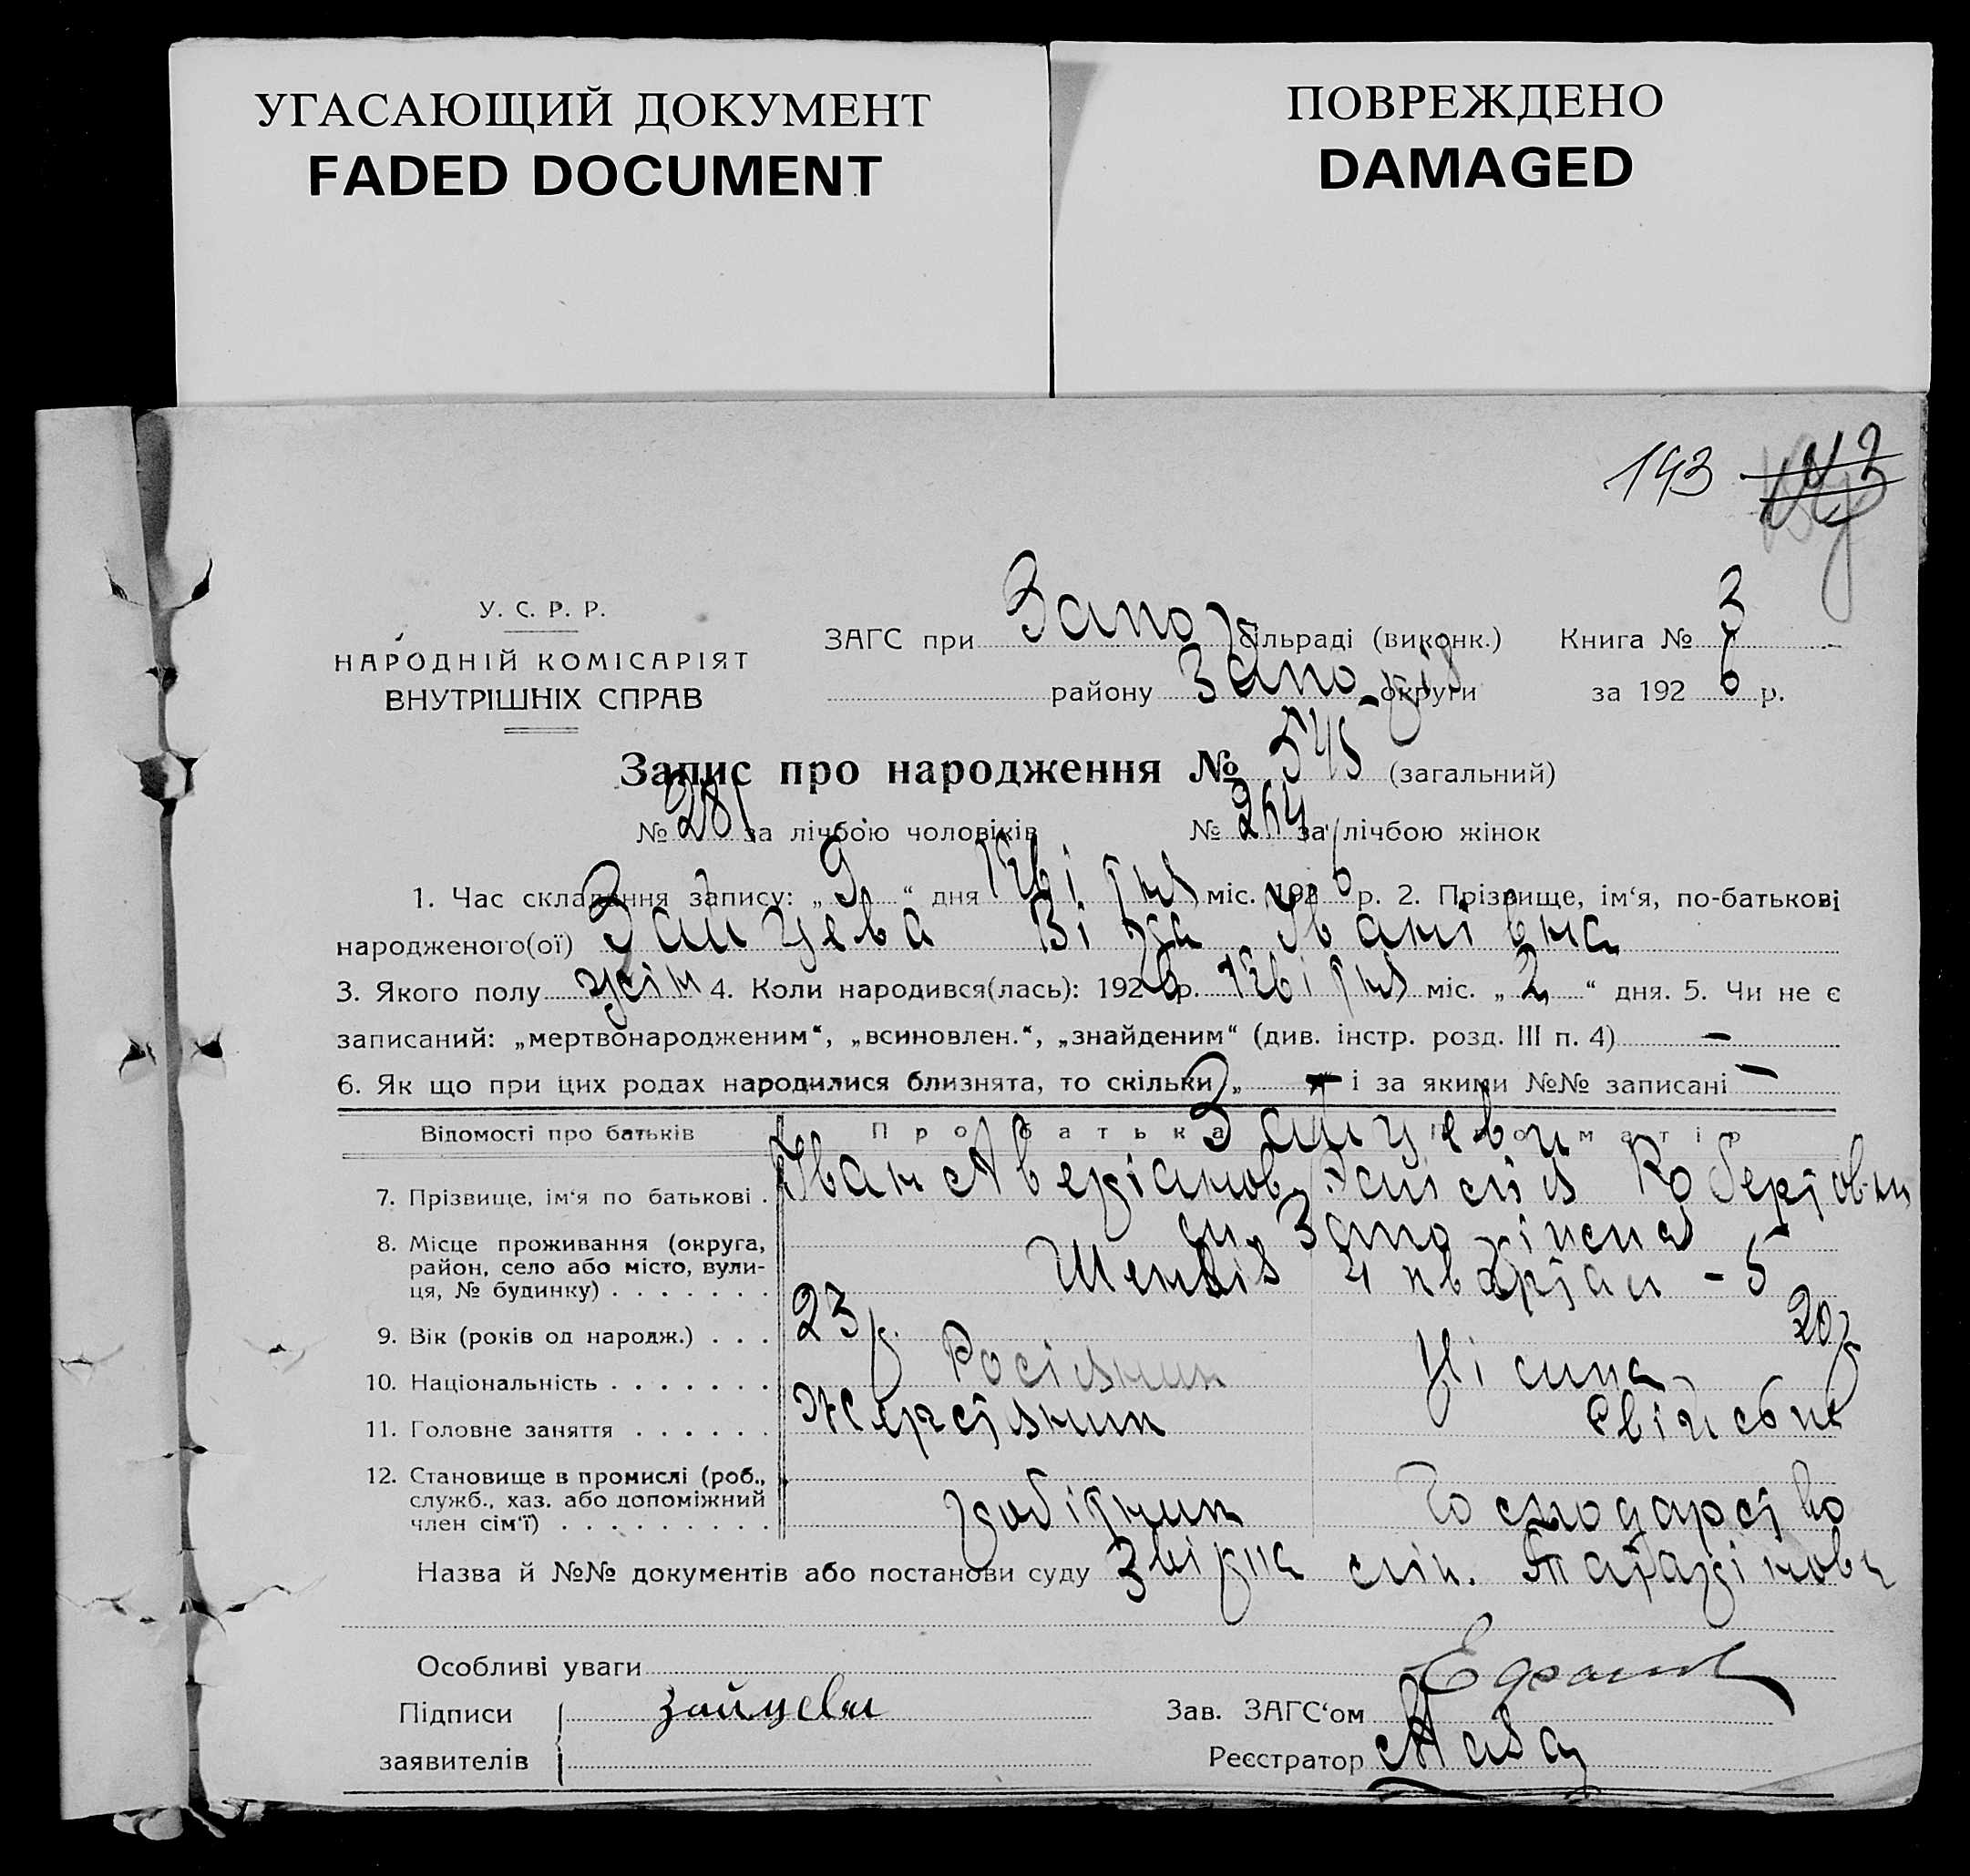 УГАСАЮЩИЙ ДОКУМЕНТ
FADED DOCUMENT
ПОВРЕЖДЕНО
DAMAGED
143
У. С. Р. Р.
НАРОДНІЙ КОМІСАРІЯТ
ВНУТРІШНІХ СПРАВ
ЗАГС при Запо сільраді (виконк.) Книга № 3
району Запо округи за 192 6 р.
Запис про народження № 545 (загальний)
№ 281 за лічбою чоловіків № 264 за лічбою жінок
1. Час складання запису: „ 9 “ дня квітня міс. 192 6 р. 2. Прізвище, ім‘я, по-батькові
народженого(ої) Зайцева Віра Іванівна
3. Якого полу жін 4. Коли народився(лась): 192 6 р. квітня міс. „ 2 “ дня. 5. Чи не є
записаний: „мертвонародженим“, „всиновлен.“, „знайденим“ (див. інстр. розд. III п. 4) —
6. Як що при цих родах народилися близнята, то скільки „ — “ і за якими №№ записані —
Відомості про батьків Про батька Про матір
Зайцеви
7. Прізвище, ім‘я по батькові . Іван Аверіанов. Робертовн
8. Місце проживання (округа, район, село або місто, вулиця, № будинку) . . . . . . . ст. Запоріжжя
4 квартал - 5
9. Вік (років од народж.) . . . 23 р. 20 р
10. Національність . . . . . . . Росіянин Німка
11. Головне заняття . . . . . . Свійське
12. Становище в промислі (роб., служб., хаз. або допоміжний член сім‘ї) . . . . . . . . . робітник господарство
Назва й №№ документів або постанови суду
Особливі уваги
Підписи зайцева Зав. ЗАГС‘ом
заявителів Реєстратор